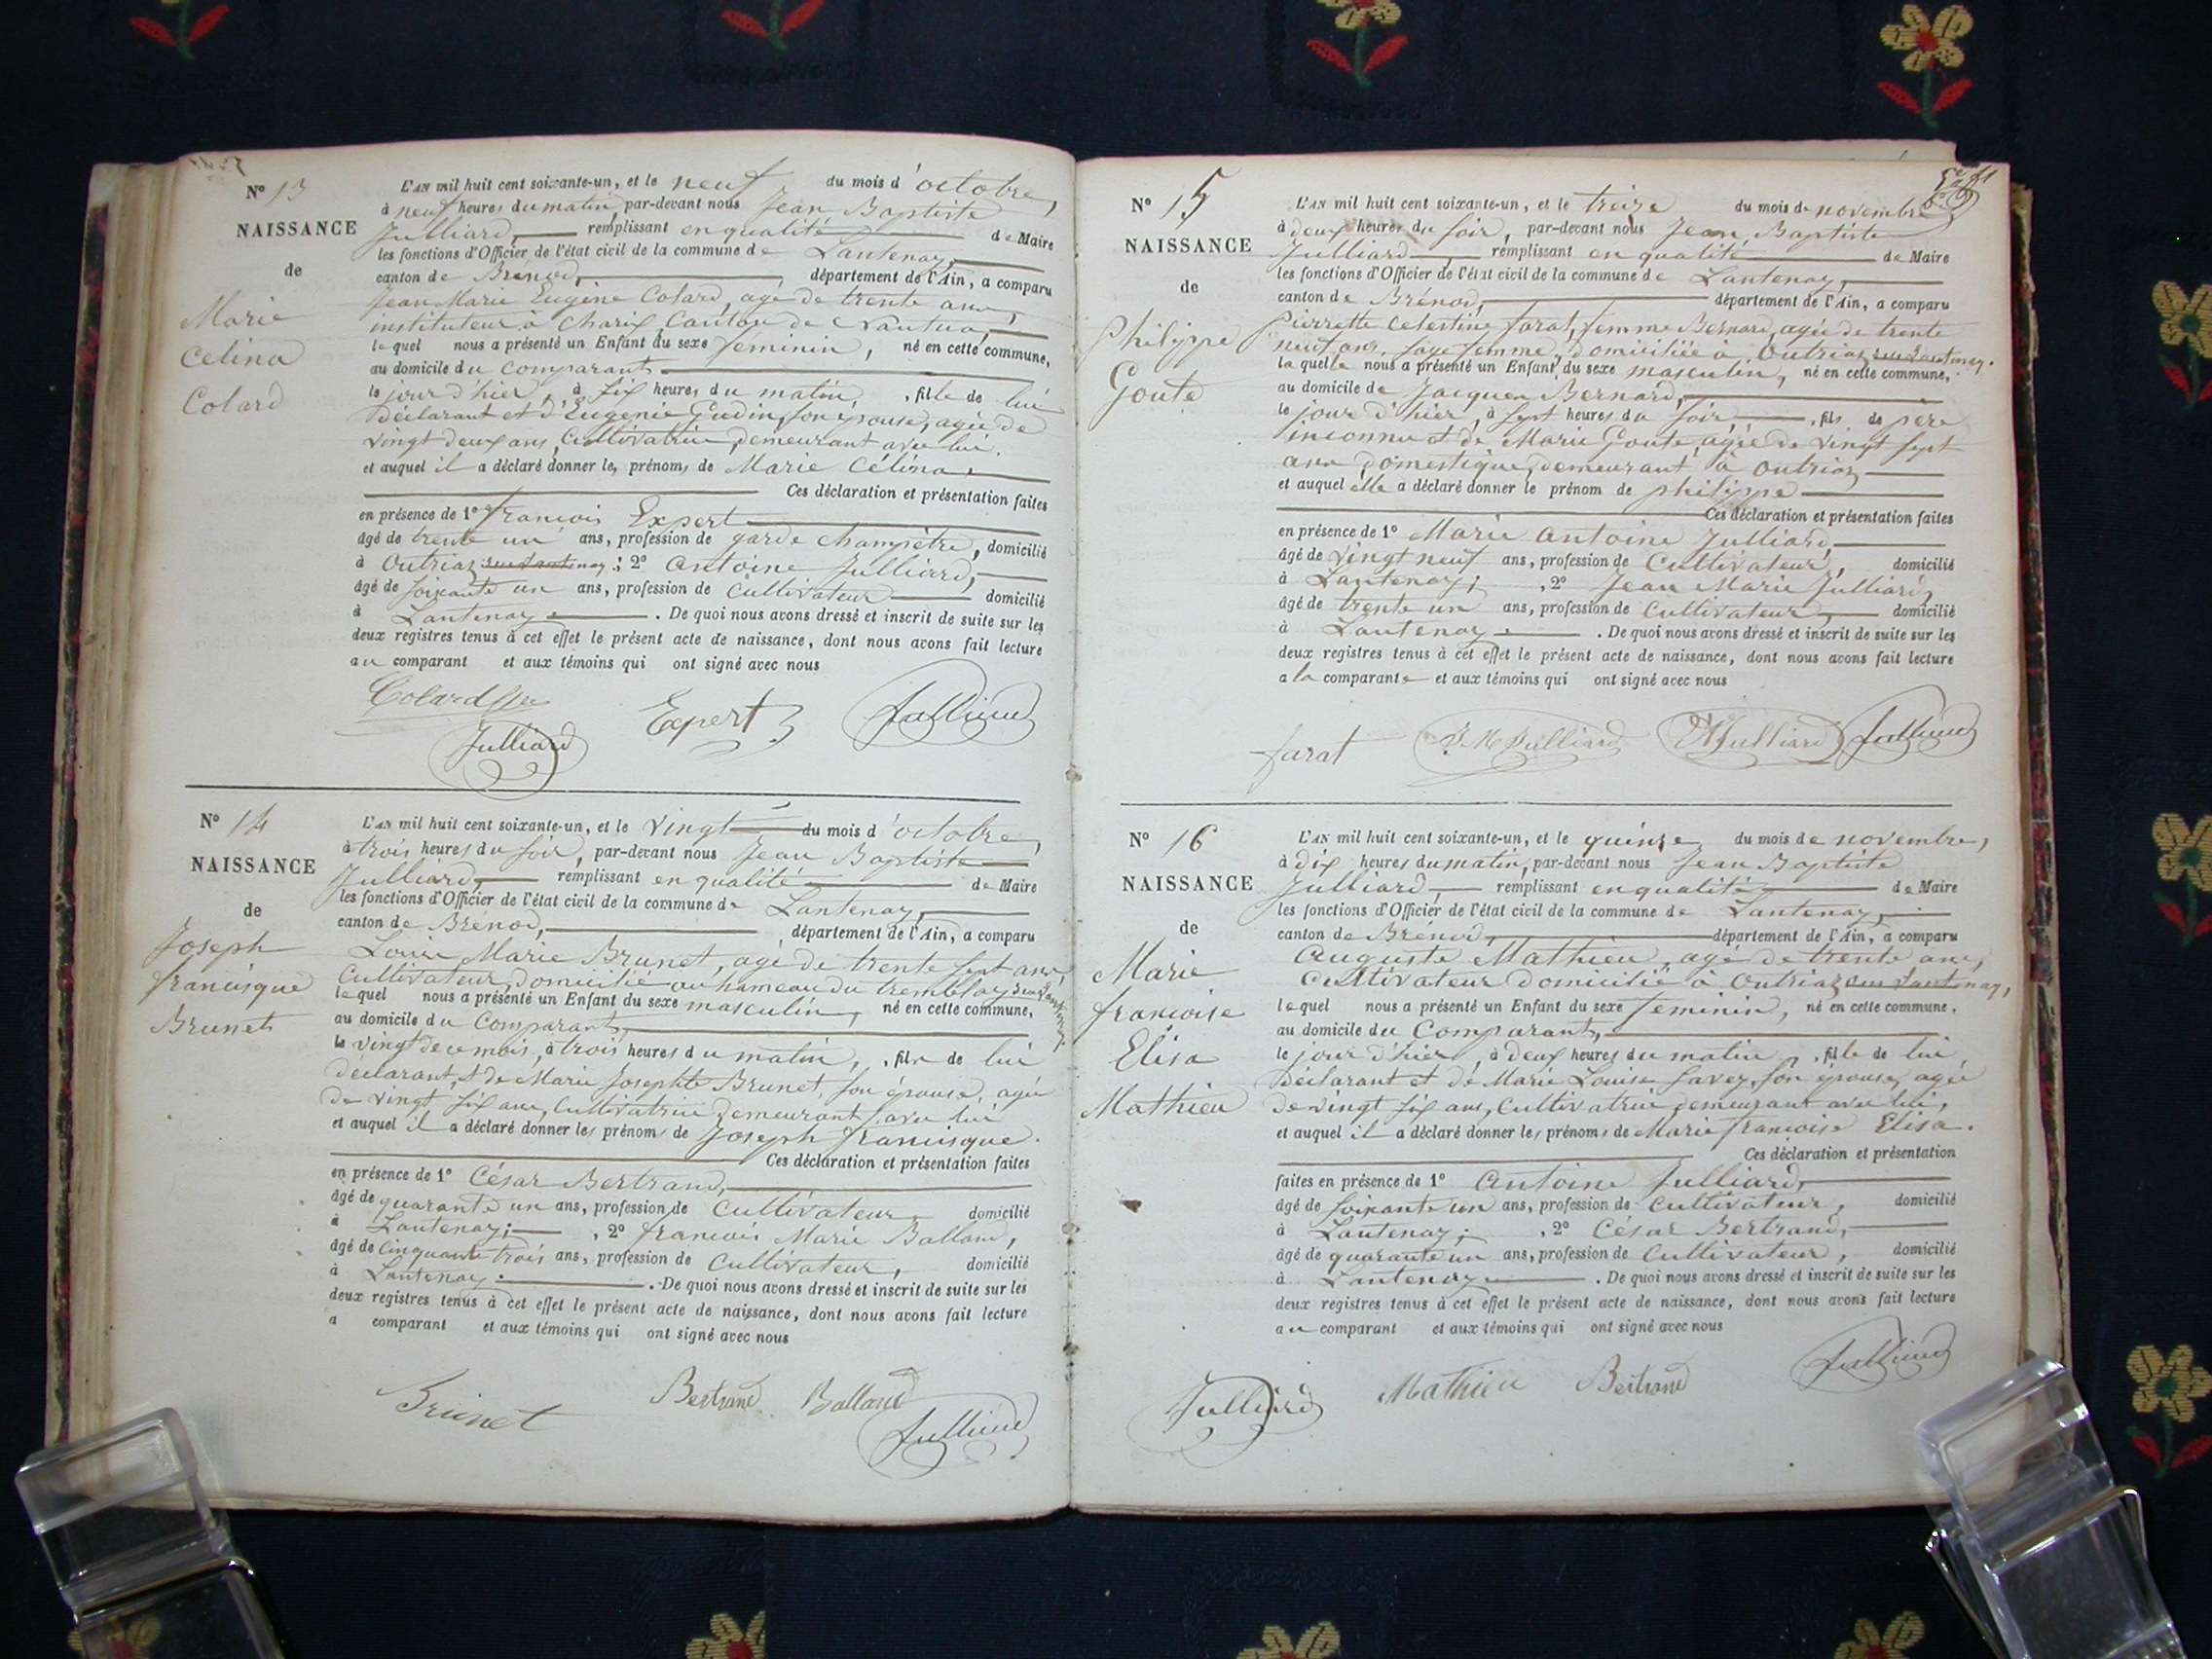 N° 13
NAISSANCE
de
Marie
Celina
Colard
L'AN mil huit cent soixante-un, et le neuf du mois d'octobre,
à neuf heures du matin, par-devant nous Jean Baptiste
Julliard, remplissant en qualité de Maire
les fonctions d'Officier de l'état civil de la commune de Lantenay,
canton de Brénod, département de l'Ain, a comparu
Jean Marie Eugène Colard, agé de trente ans,
instituteur à Charix, Canton de Nantua,
lequel nous a présenté un Enfant du sexe feminin, né en cette commune,
au domicile du comparant
le jour d'hier, à six heures du matin, fille de lui
déclarant et d'Eugenie Gudin, son épouse, agée de
vingt deux ans, Cultivatrice, demeurant avec lui.
et auquel il a déclaré donner les prénoms de Marie Célina.
Ces déclaration et présentation faites
en présence de 1° francois Expert
âgé de trente un ans, profession de garde champêtre, domicilié
à Outriaz sur Lantenay; 2° Antoine Julliard,
âgé de soixante un ans, profession de Cultivateur domicilié
à Lantenay. De quoi nous avons dressé et inscrit de suite sur les
deux registres tenus à cet effet le présent acte de naissance, dont nous avons fait lecture
au comparant et aux témoins qui ont signé avec nous
Colard
Expert
Julliard
Julliard
N° 14
NAISSANCE
de
Joseph
francisque
Brunet
L'AN mil huit cent soixante-un, et le vingt du mois d'octobre,
à trois heures du soir, par-devant nous Jean Baptiste
Julliard, remplissant en qualité de Maire
les fonctions d'Officier de l'état civil de la commune de Lantenay,
canton de Brénod, département de l'Ain, a comparu
Louis Marie Brunet, agé de trente sept ans,
Cultivateur, domicilié au hameau du tremblay sur Lantenay,
lequel nous a présenté un Enfant du sexe masculin, né en cette commune,
au domicile du Comparant,
le vingt de ce mois, à trois heures du matin, fils de lui
déclarant, et de Marie Josephte Brunet, son épouse, agée
de vingt six ans, Cultivatrice demeurant avec lui
et auquel il a déclaré donner les prénoms de Joseph francisque.
Ces déclaration et présentation faites
en présence de 1° César Bertrand,
âgé de quarante un ans, profession de Cultivateur, domicilié
à Lantenay; 2° francois Marie Balland,
âgé de cinquante trois ans, profession de Cultivateur, domicilié
à Lantenay. De quoi nous avons dressé et inscrit de suite sur les
deux registres tenus à cet effet le présent acte de naissance, dont nous avons fait lecture
a comparant et aux témoins qui ont signé avec nous
Brunet
Bertrand
Balland
Julliard
N° 15
NAISSANCE
de
Philippe
Goute
L'AN mil huit cent soixante-un, et le treize du mois de novembre
à deux heures du soir, par-devant nous Jean Baptiste
Julliard, remplissant en qualité de Maire
les fonctions d'Officier de l'état civil de la commune de Lantenay,
canton de Brénod, département de l'Ain, a comparu
Pierrette Celestine farat, femme Bernard, agée de trente
neuf ans, sage femme, domiciliée à Outriaz sur Lantenay.
laquelle nous a présenté un Enfant du sexe masculin, né en cette commune,
au domicile de Jacques Bernard,
le jour d'hier, à sept heures du soir, fils de père
inconnu et de Marie Goute, agée de vingt sept
ans domestique, demeurant à Outriaz
et auquel elle a déclaré donner le prénom de philippe
Ces déclaration et présentation faites
en présence de 1° Marie Antoine Julliard,
âgé de vingt neuf ans, profession de Cultivateur, domicilié
à Lantenay; 2° Jean Marie Julliard,
âgé de trente un ans, profession de Cultivateur, domicilié
à Lantenay. De quoi nous avons dressé et inscrit de suite sur les
deux registres tenus à cet effet le présent acte de naissance, dont nous avons fait lecture
a la comparante et aux témoins qui ont signé avec nous
farat
J M Julliard
Julliard
Julliard
N° 16
NAISSANCE
de
Marie
francoise
Elisa
Mathieu
L'AN mil huit cent soixante-un, et le quinze du mois de novembre,
à dix heures du matin, par-devant nous Jean Baptiste
Julliard, remplissant en qualité de Maire
les fonctions d'Officier de l'état civil de la commune de Lantenay,
canton de Brénod, département de l'Ain, a comparu
Auguste Mathieu, agé de trente ans,
Cultivateur domicilié à Outriaz sur Lantenay,
lequel nous a présenté un Enfant du sexe feminin, né en cette commune,
au domicile du Comparant,
le jour d'hier, à deux heures du matin, fille de lui
déclarant et de Marie Louise Savey, son épouse, agée
de vingt six ans, Cultivatrice demeurant avec lui,
et auquel il a déclaré donner les prénoms de Marie francoise Elisa.
Ces déclaration et présentation
faites en présence de 1° Antoine Julliard,
âgé de soixante un ans, profession de Cultivateur, domicilié
à Lantenay; 2° César Bertrand,
âgé de quarante un ans, profession de Cultivateur, domicilié
à Lantenay. De quoi nous avons dressé et inscrit de suite sur les
deux registres tenus à cet effet le présent acte de naissance, dont nous avons fait lecture
au comparant et aux témoins qui ont signé avec nous
Julliard
Mathieu
Bertrand
Julliard